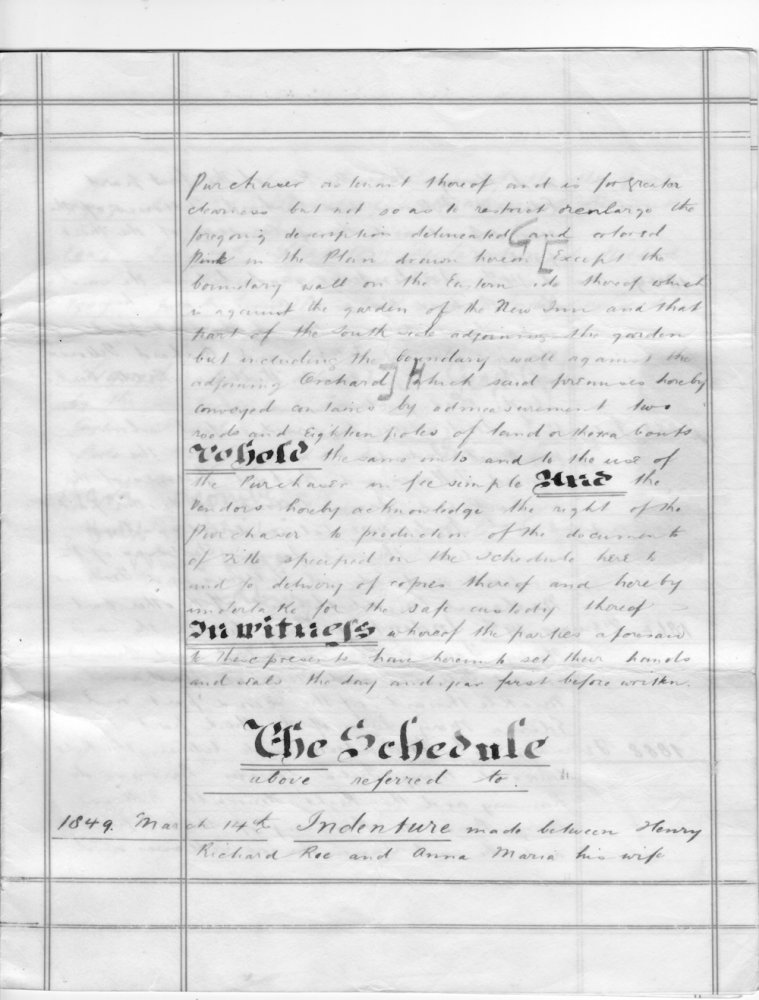 Purchaser or tenant thereof and is for greater
clearness but not so as to restrict or enlarge the
foregoing description delineated and colored
Pink in the Plan drawn hereon [Except the
boundary wall on the Eastern side thereof which
is against the garden of the New Inn and that
part of the South side adjoining the garden
but including the boundary wall against the
adjoining Orchard] which said premises hereby
conveyed contains by admeasurement two
roods and Eighteen poles of land or thereabouts
To hold the same unto and to the use of
the Purchaser in fee simple And the
Vendors hereby acknowledge the right of the
Purchaser to production of the documents
of Title specified in the Schedule here to
and to delivery of copies thereof and hereby
undertake for the safe custody thereof
In witness whereof the parties aforesaid
to these presents have hereunto set their hands
and seals the day and year first before written.
The Schedule
above referred to.
1849. March 14th Indenture made between Henry
Richard Roe and Anna Maria his wife